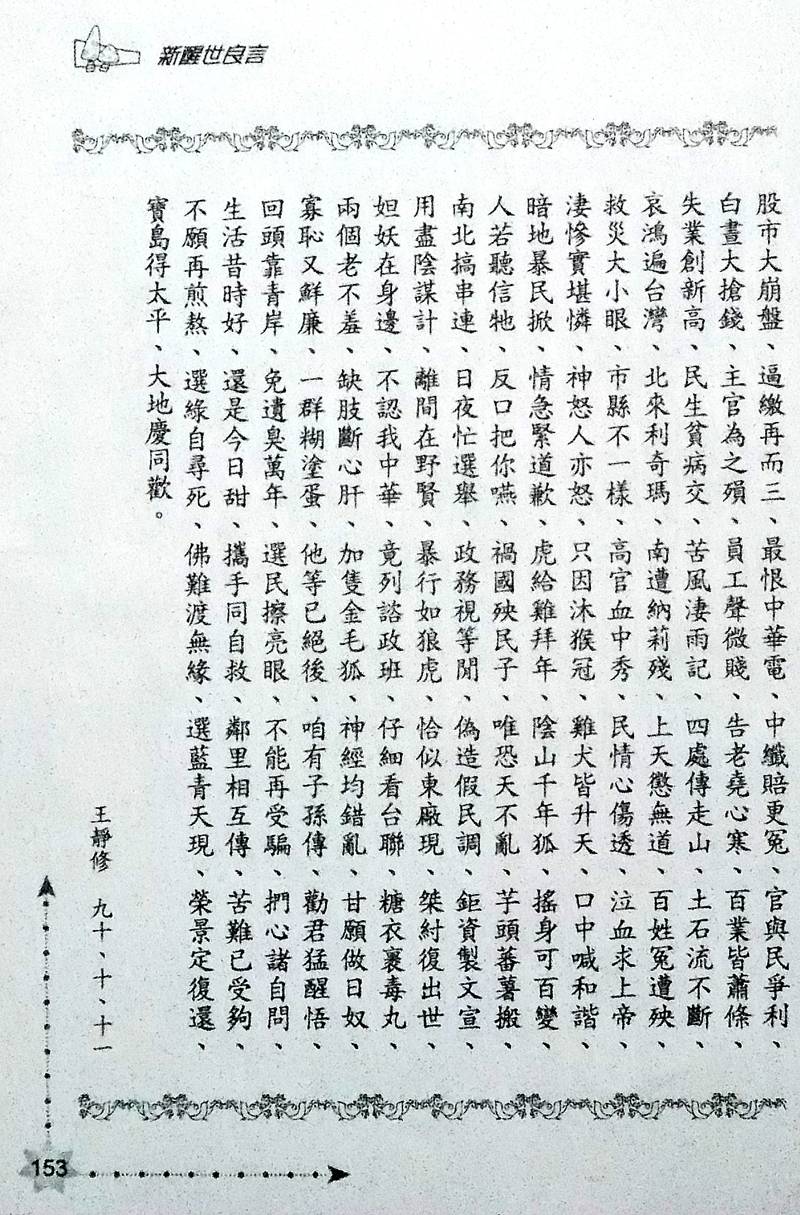 新醒世良言
股市大崩盤、逼繳再而三、最恨中華電、中纖賠更冤、官與民爭利、
白晝大搶錢、主官為之殞、員工聲微賤、告老堯心寒、百業皆蕭條、
失業創新高、民生貧病交、苦風淒雨記、四處傳走山、土石流不斷、
哀鴻遍台灣、北來利奇瑪、南遭納莉殘、上天懲無道、百姓冤遭殃、
救災大小眼、市縣不一樣、高官血中秀、民情心傷透、泣血求上帝、
淒慘實堪憐、神怒人亦怒、只因沐猴冠、雞犬皆升天、口中喊和諧、
暗地暴民掀、情急緊道歉、虎給雞拜年、陰山千年狐、搖身可百變、
人若聽信牠、反口把你嚥、禍國殃民子、唯恐天不亂、芋頭蕃薯搬、
南北搞串連、日夜忙選舉、政務視等閒、偽造假民調、鉅資製文宣、
用盡陰謀計、離間在野賢、暴行如狼虎、恰似東廠現、桀紂復出世、
妲妖在身邊、不認我中華、竟列諮政班、仔細看台聯、糖衣裹毒丸、
兩個老不羞、缺肢斷心肝、加隻金毛狐、神經均錯亂、甘願做日奴、
寡恥又鮮廉、一群糊塗蛋、他等已絕後、咱有子孫傳、勸君猛醒悟、
回頭靠青岸、免遺臭萬年、選民擦亮眼、不能再受騙、捫心諸自問、
生活昔時好、還是今日甜、攜手同自救、鄰里相互傳、苦難已受夠、
不願再煎熬、選綠自尋死、佛難渡無緣、選藍青天現、榮景定復還、
寶島得太平、大地慶同歡。
王靜修 九十、十、十一
153